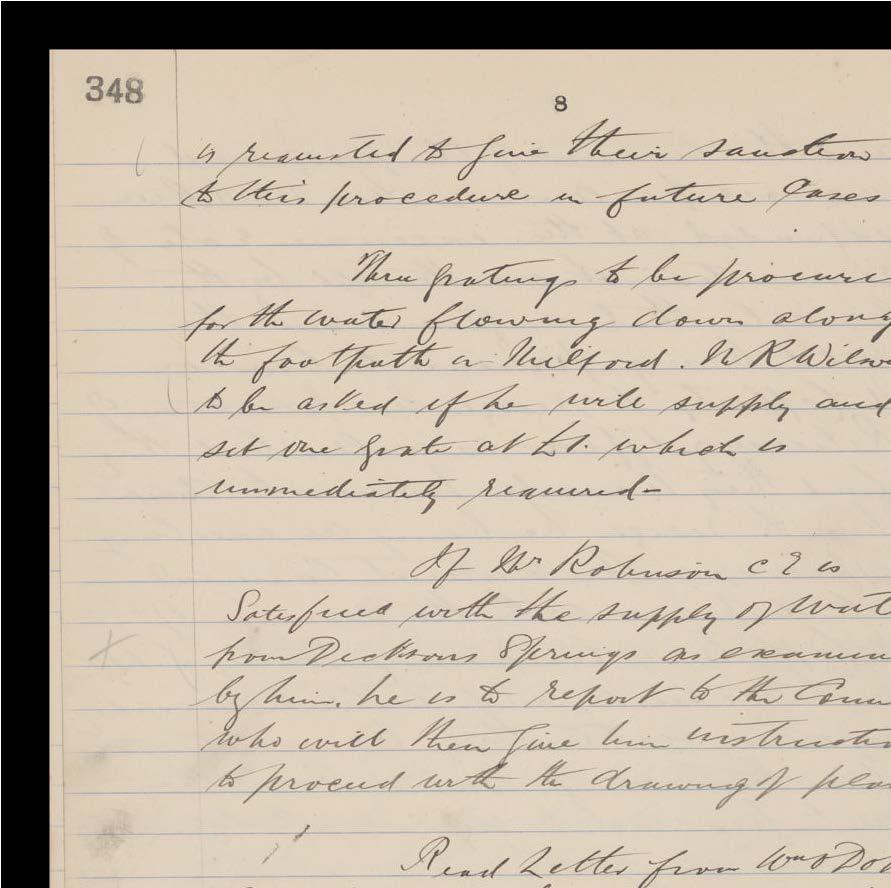 348
8
is requested to give their sanction
to this procedure in future Cases
Three gratings to be procure
for the water flowing down along
the footpath in Milford. Mr R Wilso
to be asked if he will supply and
set one grate at £1. which is
immediately required—
If Mr Robinson C E is
Satisfied with the supply of Wat
from Dicksons Springs as examin
by him, he is to report to the Coun
who will then give him instructi
to proceed with the drawing of pla
Read Letter from Wm